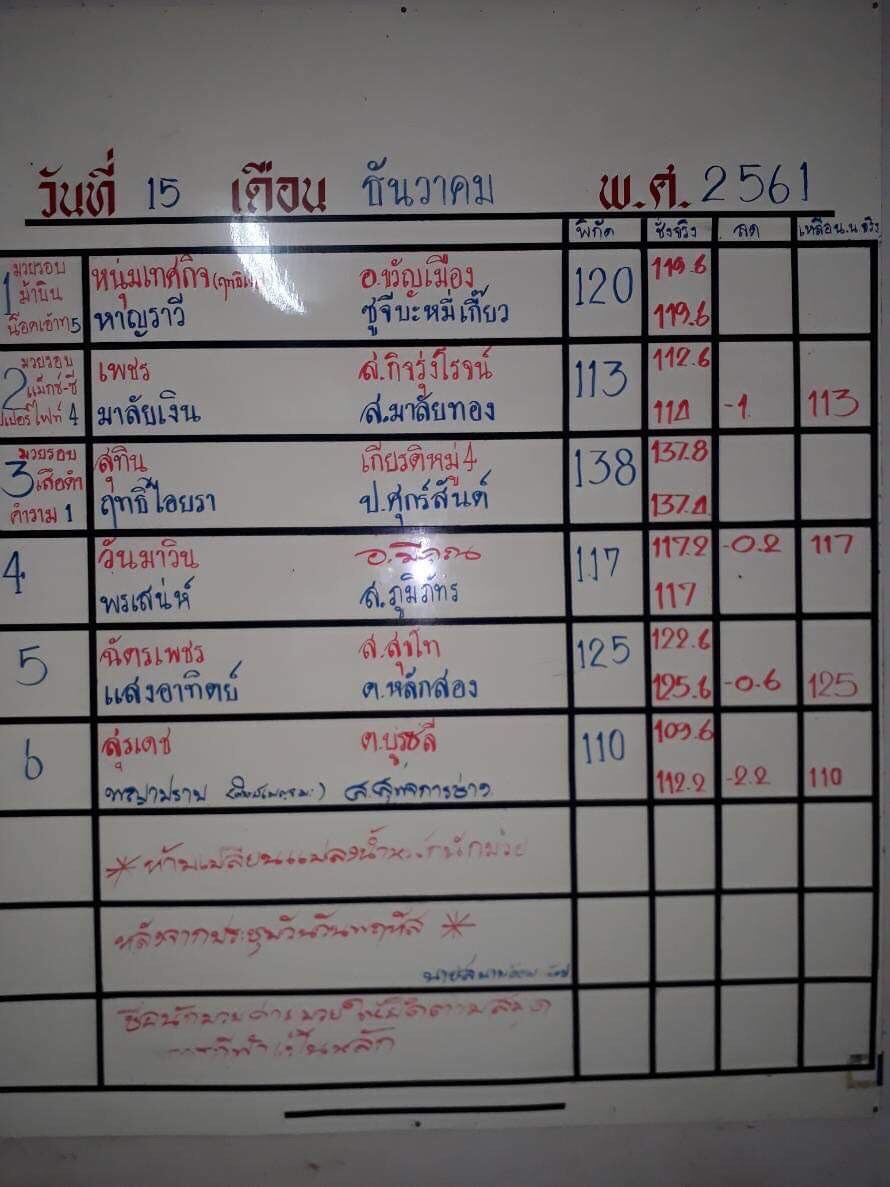 วันที่ 15 เดือน ธันวาคม พ.ศ. 2561
พิกัด ชั่งจริง ลด เหลือน.น จริง
1 มวยรอบ ม้าบิน น็อคเอ้าท 5
หนุ่มเทศกิจ อ.ขวัญเมือง 120 119.6
หาญราวี ซูจีบะหมี่เกี๊ยว 119.6
2 มวยรอบ แม็กซ์-ซี เปอร์ไฟท์ 4
เพชร ส.กิจรุ่งโรจน์ 113 112.6
มาลัยเงิน ส.มาลัยทอง 114 -1 113
3 มวยรอบ เสือดำ คำราม 1
สุทิน เกียรติหมู่4 138 137.8
ฤทธิ์ไอยรา ป.ศุกร์สันต์ 137.4
4 วันมาวิน 117 117.2 -0.2 117
พรเสน่ห์ ส.ภูมิภัทร 117
5 ฉัตรเพชร ส.สุขใท 125 122.6
แสงอาทิตย์ ต.หลักสอง 125.6 -0.6 125
6 สุรเดช ต.บุรชลี 110 109.6
พญาปราบ 112.2 -2.2 110
* ห้ามเปลี่ยนแปลงน้ำหนักนักมวย
หลังจากประชุมวันวันพฤหัส *